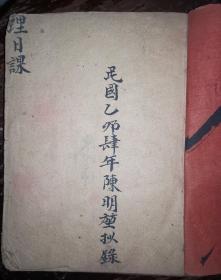 民國乙卯肆年陳明堃抄錄
理日課